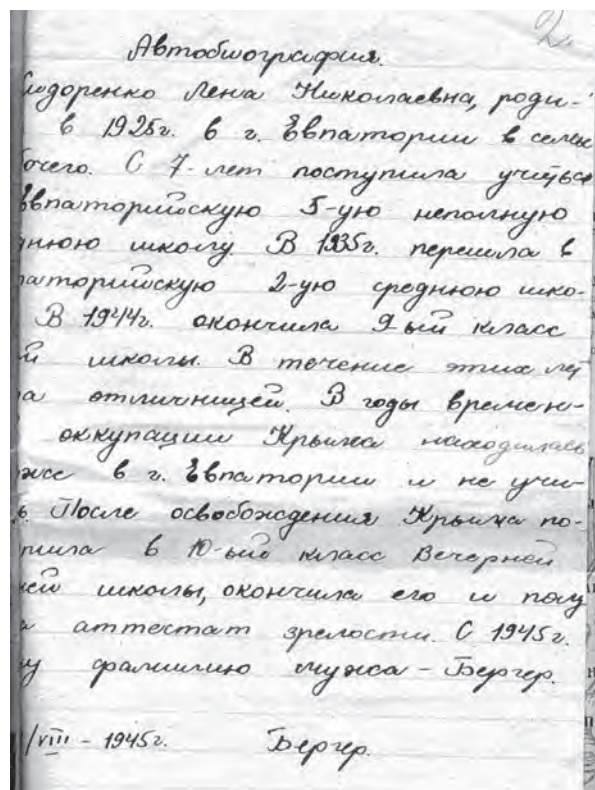 2.
Автобиография.
Сидоренко Лена Николаевна, роди-
в 1925г. в г. Евпатории в семье
бочего. С 7-лет поступила учиться
Евпаторийскую 5-ую неполную
днюю школу. В 1935г. перешла в
паторийскую 2-ую среднюю шко-
В 1944г. окончила 9-ый класс
й школы. В течение этих лет
ла отличницей. В годы времен-
оккупации Крыма находилась
же в г. Евпатории и не учи-
ь. После освобождения Крыма по-
пила в 10-ый класс Вечерней
ней школы, окончила его и полу
а аттестат зрелости. С 1945г.
у фамилию мужа - Бергер.
/VIII - 1945г. Бергер.